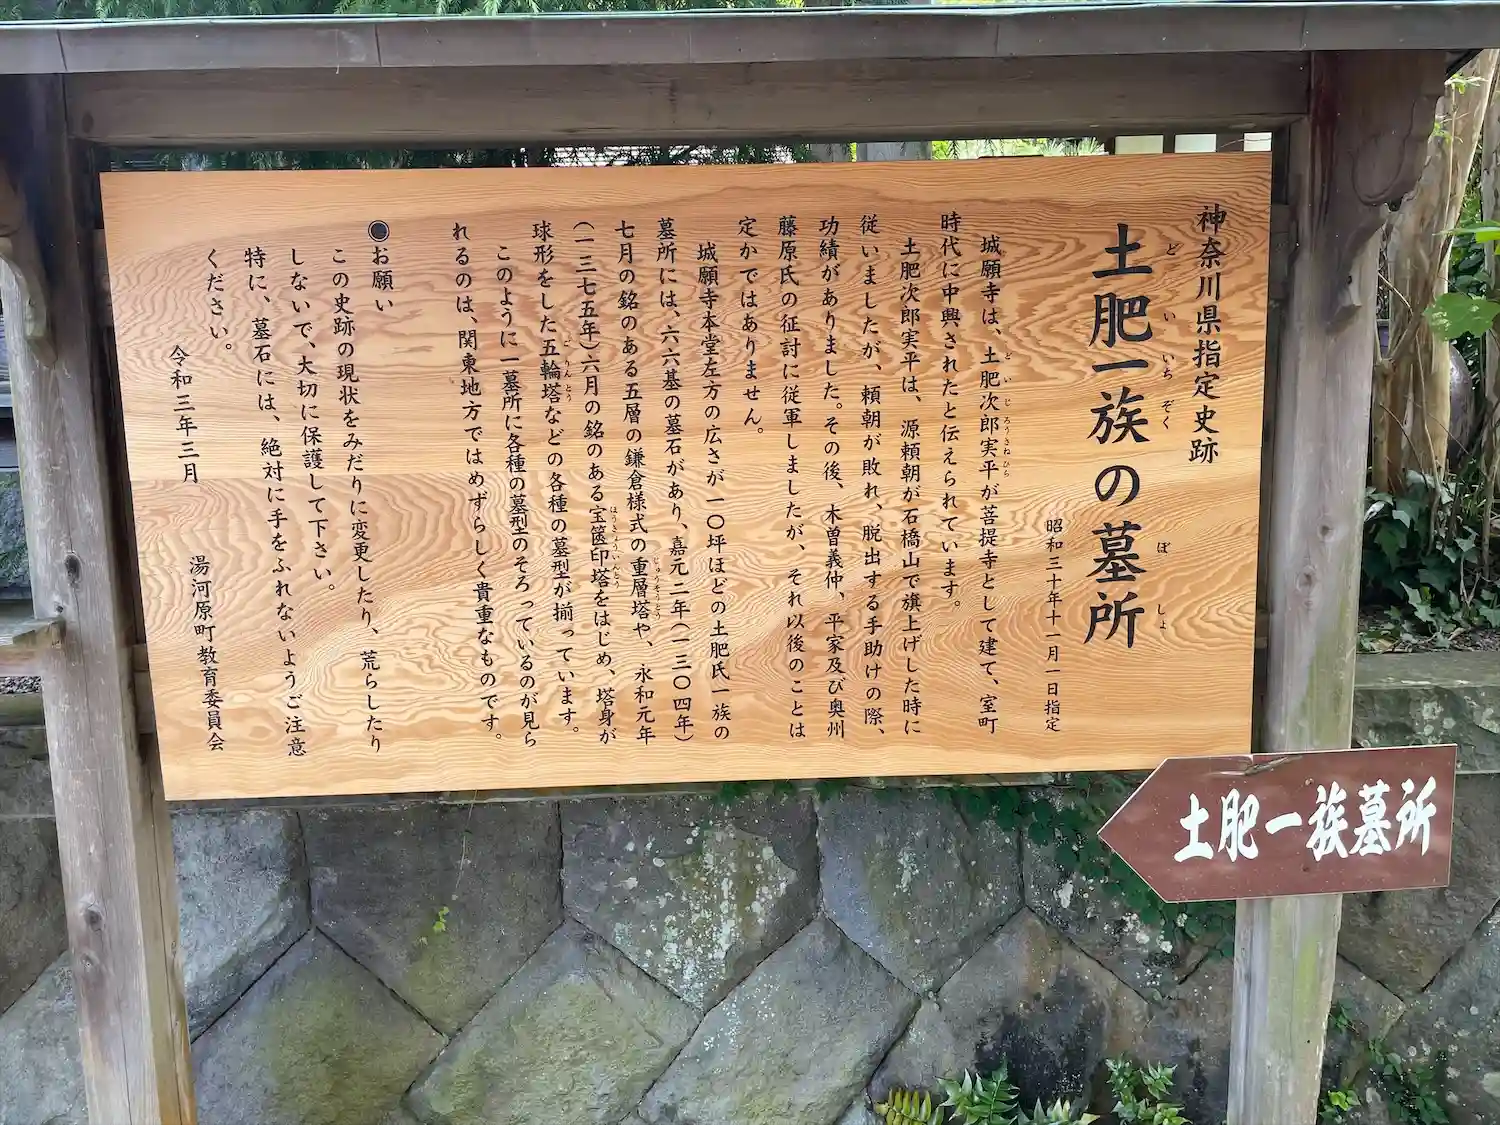 神奈川県指定史跡
土肥一族の墓所
どいいちぞくぼしょ
昭和三十年十一月一日指定
城願寺は、土肥次郎実平が菩提寺として建て、室町
どいじろうさねひら
時代に中興されたと伝えられています。
土肥次郎実平は、源頼朝が石橋山で旗上げした時に
従いましたが、頼朝が敗れ、脱出する手助けの際、
功績がありました。その後、木曽義仲、平家及び奥州
藤原氏の征討に従軍しましたが、それ以後のことは
定かではありません。
城願寺本堂左方の広さが一〇坪ほどの土肥氏一族の
墓所には、六六基の墓石があり、嘉元二年(一三〇四年)
七月の銘のある五層の鎌倉様式の重層塔や、永和元年
じゅうそうとう
(一三七五年)六月の銘のある宝篋印塔をはじめ、塔身が
ほうきょういんとう
球形をした五輪塔などの各種の墓型が揃っています。
ごりんとう
このように一墓所に各種の墓型のそろっているのが見ら
れるのは、関東地方ではめずらしく貴重なものです。
◉お願い
この史跡の現状をみだりに変更したり、荒らしたり
しないで、大切に保護して下さい。
特に、墓石には、絶対に手をふれないようご注意
ください。
令和三年三月 湯河原町教育委員会
土肥一族墓所